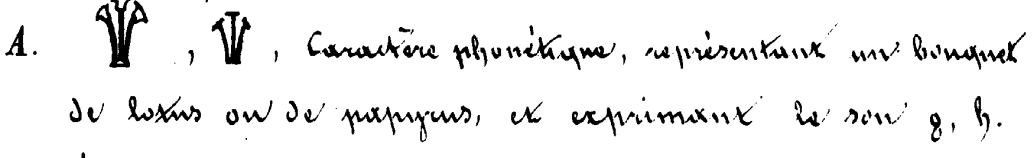 A. 𓇉, 𓇉, Caractère phonétique, représentant un bouquet
de lotus ou de papyrus, et exprimant le son g, h.